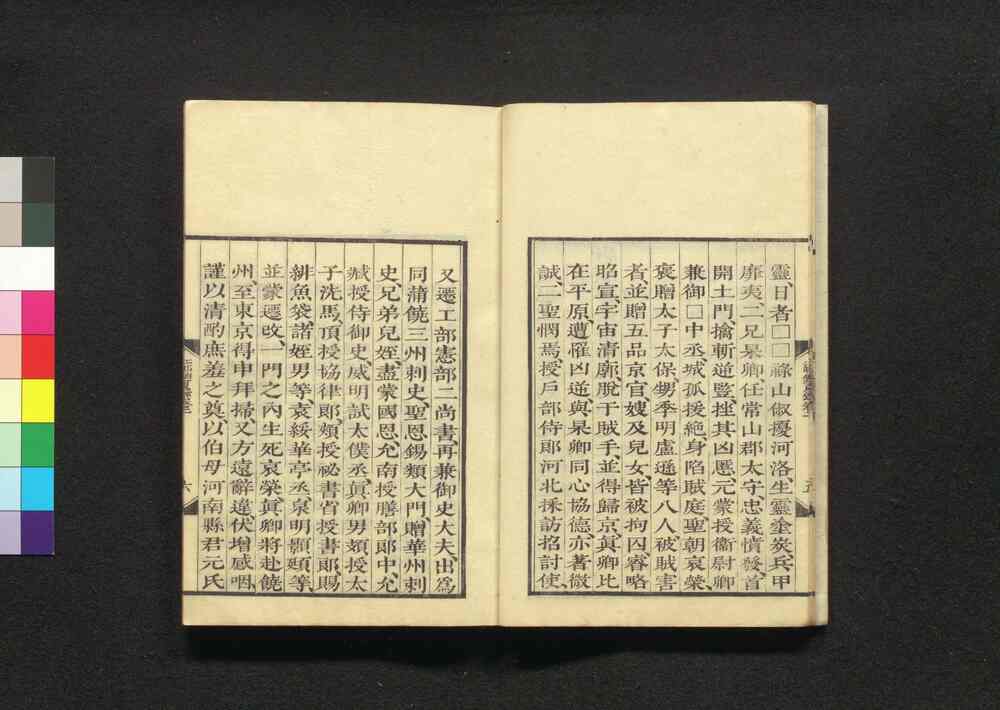 靈、日者□□祿山俶擾河洛、生靈塗炭、兵甲
靡夷、二兄杲卿任常山郡太守、忠義憤發、首
開土門、擒斬逆豎、挫其凶慝、元蒙授衞尉卿
兼御□中丞、城孤援絶、身陷賊庭、聖朝哀榮、
褒贈太子太保、甥季明盧逖等八人、被賊害
者、並贈五品京官、嫂及兒女、皆被拘囚、睿略
昭宣、宇宙清廓、脫于賊手、並得歸京、眞卿比
在平原、遭罹凶逆、與杲卿同心協德、亦著微
誠、二聖憫焉、授戶部侍郞河北採訪招討使、
又遷工部憲部二尚書、再兼御史大夫、出爲
同蒲饒三州刺史、聖恩錫類大門、贈華州刺
史、兄弟兒姪、盡蒙國恩、允南授膳部郞中、允
臧授侍御史、威明試太僕丞、眞卿男頍授太
子洗馬、頂授協律郞、頍授祕書省授書郞、賜
緋魚袋、諸姪男等、袁綏華亭丞泉明顥頲等、
並蒙遷改、一門之內、生死哀榮、眞卿將赴饒
州、至東京得申拜掃、又方遠辭違、伏增感咽、
謹以清酌庶羞之奠、以伯母河南縣君元氏
六